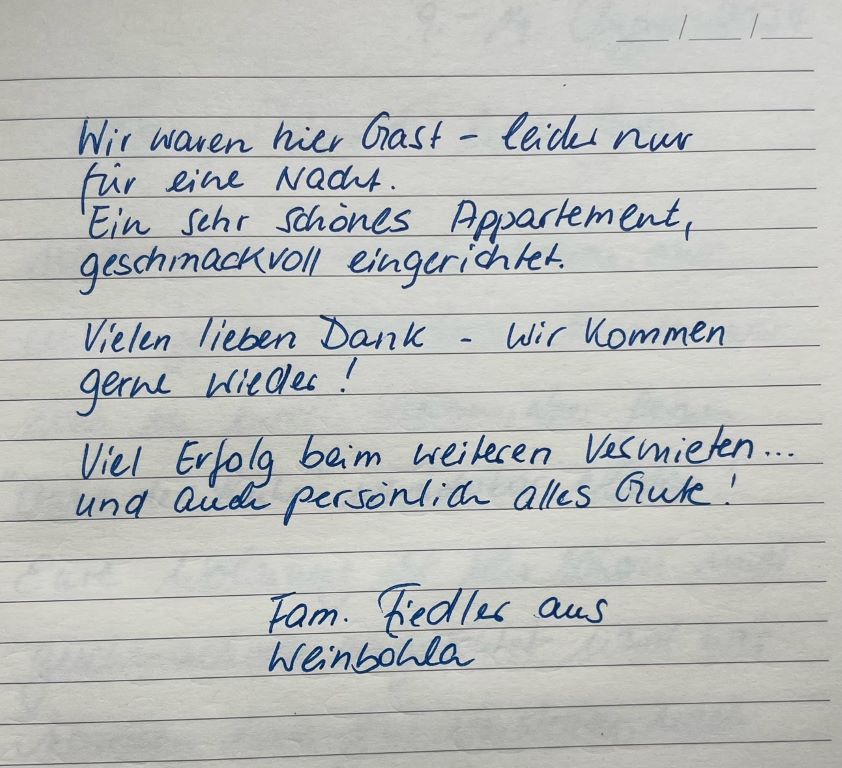 Wir waren hier Gast - leider nur
für eine Nacht.
Ein sehr schönes Appartement,
geschmackvoll eingerichtet.
Vielen lieben Dank - Wir kommen
gerne wieder!
Viel Erfolg beim weiteren Vermieten...
und auch persönlich alles Gute!
Fam. Fiedler aus
Weinböhla